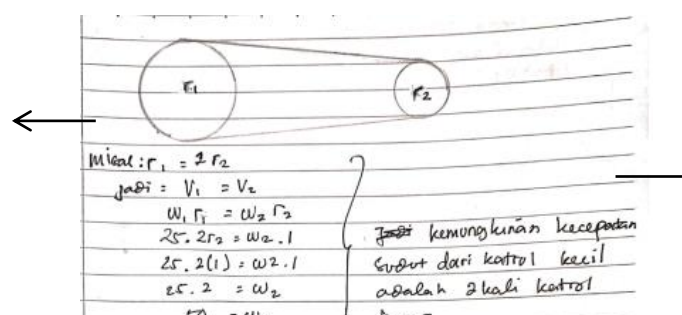 r1
r2
misal : r1 = 2 r2
jadi : V1 = V2
ω1 r1 = ω2 r2
25. 2r2 = ω2 . 1
25. 2(1) = ω2 . 1
25. 2 = ω2
kemungkinan kecepatan
sudut dari katrol kecil
adalah 2 kali katrol